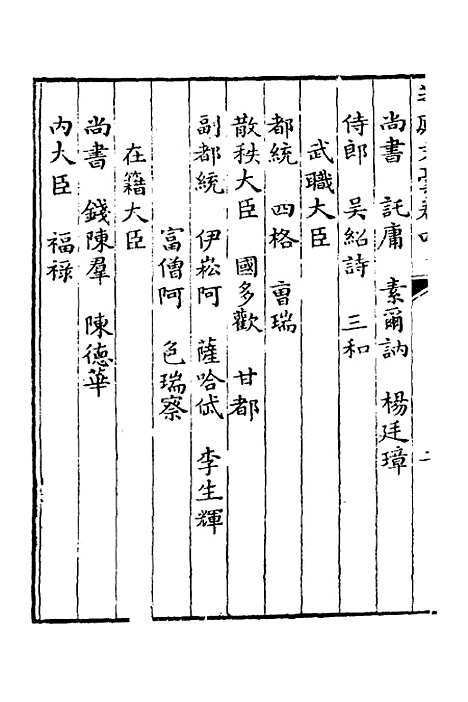 尚書 託庸 素爾訥 楊廷璋
侍郎 吳紹詩 三和
武職大臣
都統 四格 曺瑞
散秩大臣 國多歡 甘都
副都統 伊崧阿 薩哈岱 李生輝
富僧阿 色瑞察
在籍大臣
尚書 錢陳羣 陳德華
內大臣 福禄